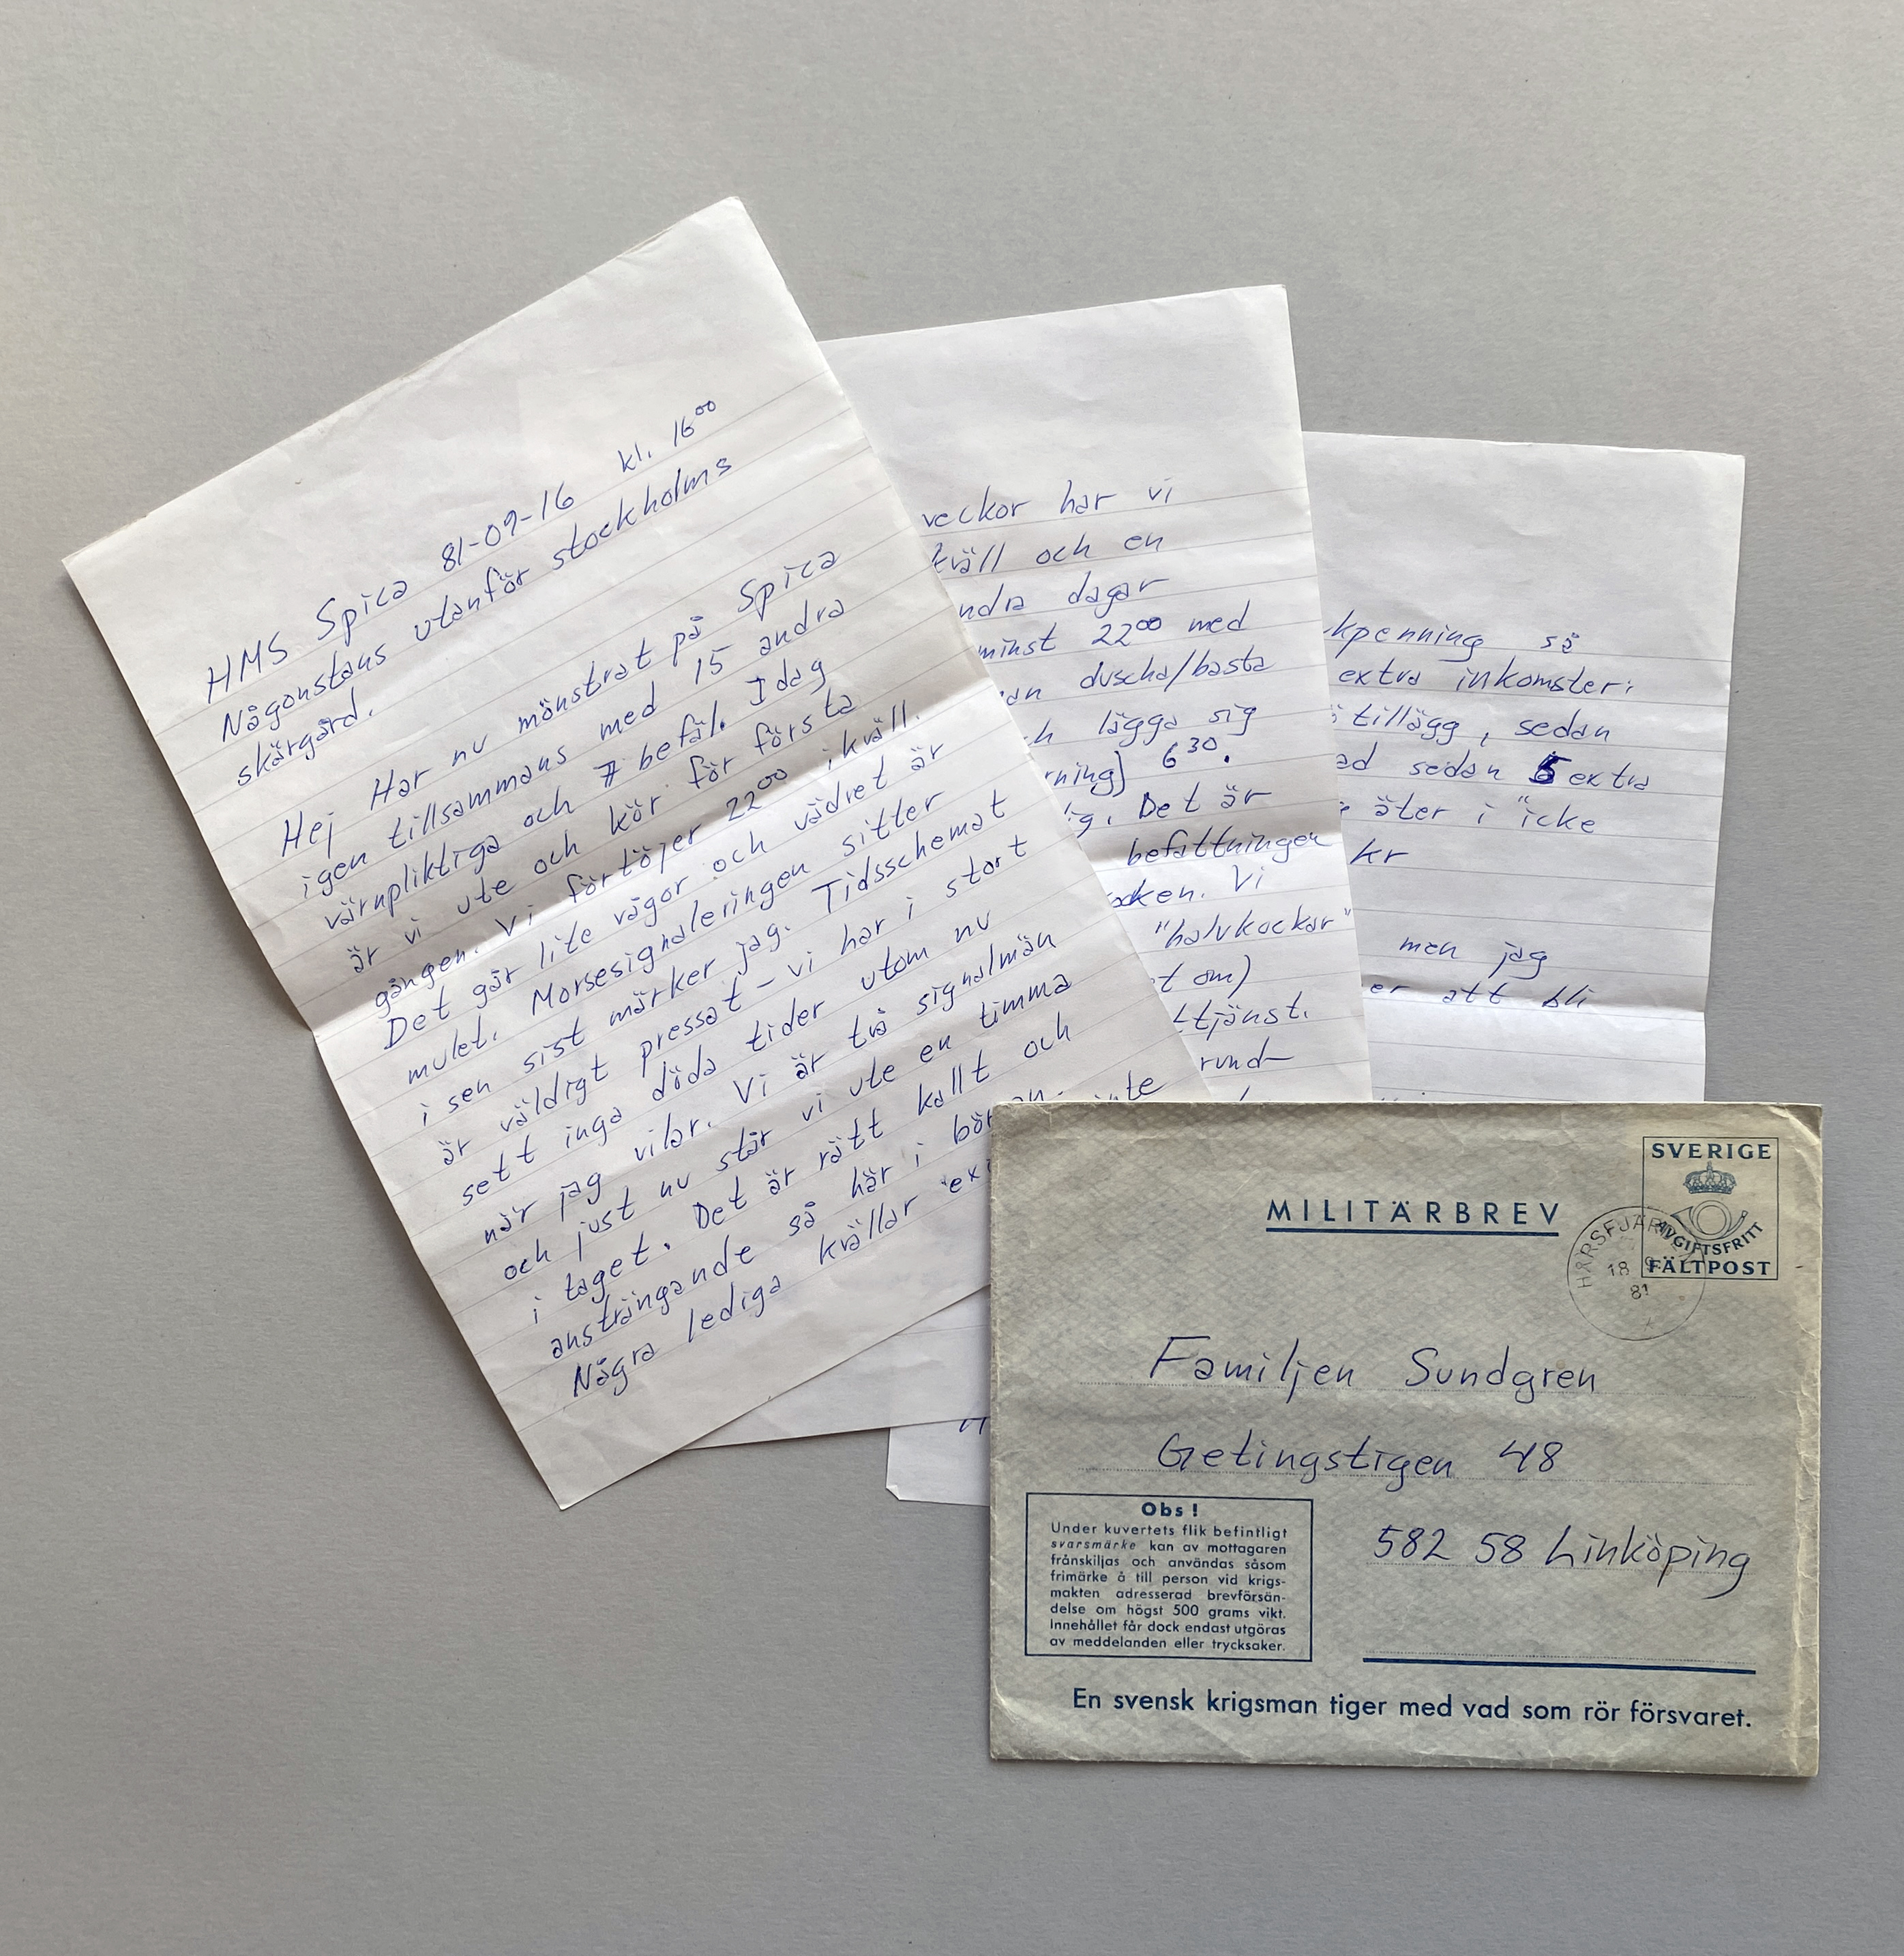 HMS Spica 81-09-16 kl. 16⁰⁰
Någonstans utanför stockholms
skärgård.
Hej Har nu mönstrat på Spica
igen tillsammans med 15 andra
värnpliktiga och 7 befäl. Idag
är vi ute och kör för första
gången. Vi förtöjer 22⁰⁰ ikväll.
Det går lite vågor och vädret är
mulet. Morsesignaleringen sitter
i sen sist märker jag. Tidsschemat
är väldigt pressat - vi har i stort
sett inga döda tider utom nu
när jag vilar. Vi är två signalmän
och just nu står vi ute en timma
i taget. Det är rätt kallt och
ansträngande så här i
Några lediga kvällar
veckor har vi
kväll och en
ndra dagar
minst 22⁰⁰ med
an duscha/basta
h lägga sig
rning) 6³⁰.
ig. Det är
befattningen
ocken. Vi
"halvkockar"
t om)
ttjänst.
rund-
kpenning så
extra inkomster:
tillägg, sedan
ad sedan 5 extra
äter i "icke
kr
men jag
er att bli
MILITÄRBREV
SVERIGE
AVGIFTSFRITT
FÄLTPOST
HÅRSFJÄR
18 9
81
Familjen Sundgren
Getingstigen 48
582 58 Linköping
Obs!
Under kuvertets flik befintligt
svarsmärke kan av mottagaren
frånskiljas och användas såsom
frimärke å till person vid krigs-
makten adresserad brevförsän-
delse om högst 500 grams vikt.
Innehållet får dock endast utgöras
av meddelanden eller trycksaker.
En svensk krigsman tiger med vad som rör försvaret.